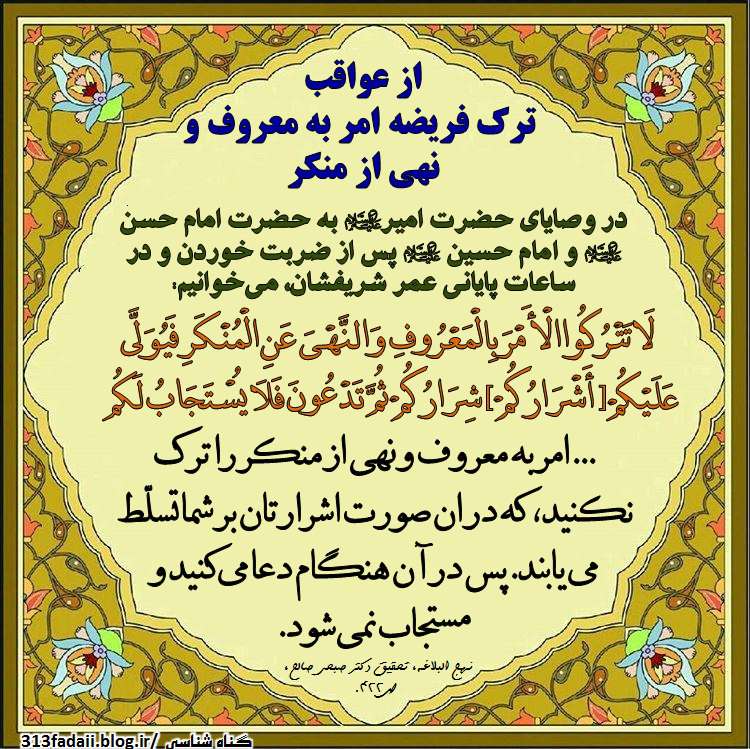 از عواقب
ترک فریضه امر به معروف و
نهی از منکر
در وصایای حضرت امیر علیه‌السلام به حضرت امام حسن
علیه‌السلام و امام حسین علیه‌السلام پس از ضربت خوردن و در
ساعات پایانی عمر شریفشان، می‌خوانیم:
لَا تَتْرُكُوا الْأَمْرَ بِالْمَعْرُوفِ وَ النَّهْيَ عَنِ الْمُنْكَرِ فَيُوَلَّى
عَلَيْكُمْ [أَشْرَارُكُمْ] شِرَارُكُمْ ثُمَّ تَدْعُونَ فَلَا يُسْتَجَابُ لَكُمْ
...امر به معروف و نهی از منکر را ترک
نکنید، که در ان صورت اشرارتان بر شما تسلّط
می‌یابند. پس در آن هنگام دعا می‌کنید و
مستجاب نمی‌شود.
نهج البلاغه، تحقیق دکتر صبحی صالح،
ص۴۲۲.
گناه شناسی /313fadaii.blog.ir